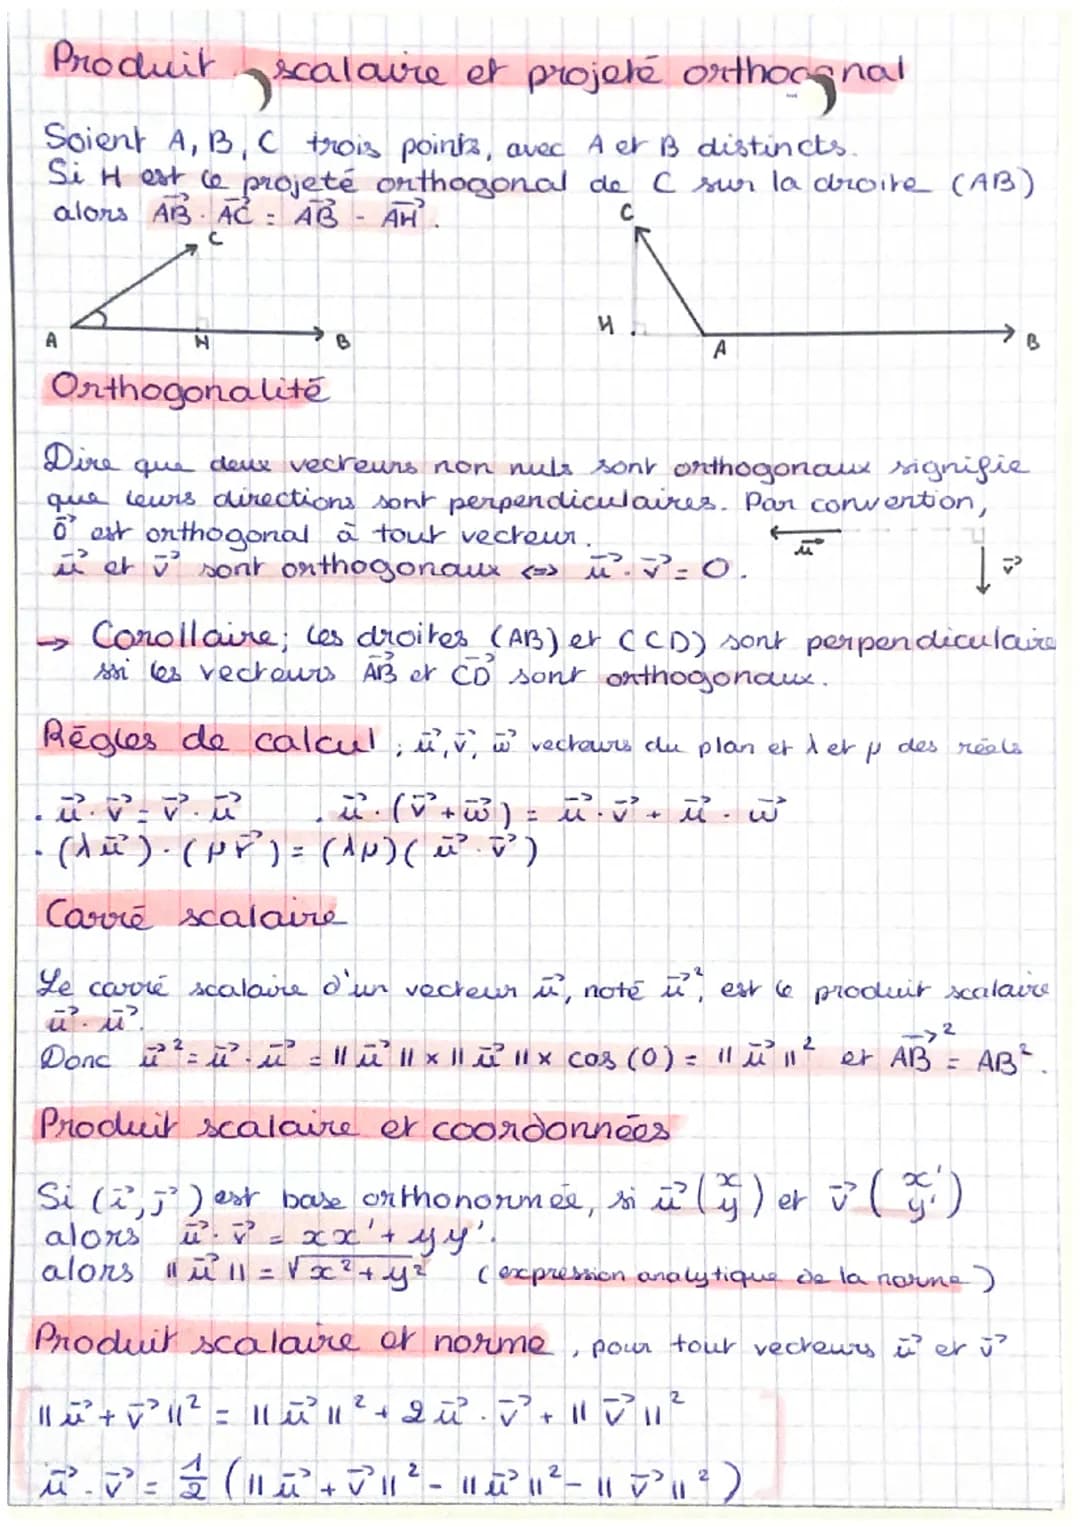 Produit scalaire et projeté orthogonal
Soient A, B, C trois points, avec A et B distincts.
Si H est le projeté orthogonal de C sur la droite (AB)
alors AB⃗ · AC⃗ = AB⃗ - AH⃗.
C
C
A
H
B
H
A
B
Orthogonalité
Dire que deux vecteurs non nuls sont orthogonaux signifie
que leurs directions sont perpendiculaires. Par convention,
0⃗ est orthogonal à tout vecteur.
u⃗
u⃗ et v⃗ sont orthogonaux <=> u⃗ · v⃗ = 0.
v⃗
→ Corollaire; les droites (AB) et (CD) sont perpendiculaire
ssi les vecteurs AB⃗ et CD⃗ sont orthogonaux.
Règles de calcul ; u⃗, v⃗, w⃗ vecteurs du plan et λ et μ des réels
· u⃗ · v⃗ = v⃗ · u⃗ · u⃗ · (v⃗ + w⃗) = u⃗ · v⃗ + u⃗ · w⃗
· (λu⃗) · (μv⃗) = (λμ)(u⃗ · v⃗)
Carré scalaire
Le carré scalaire d'un vecteur u⃗, noté u⃗², est le produit scalaire
u⃗ · u⃗.
Donc u⃗² = u⃗ · u⃗ = ||u⃗|| × ||u⃗|| × cos (0) = ||u⃗||² et AB⃗² = AB².
Produit scalaire et coordonnées
Si (i⃗, j⃗) est base orthonormée, si u⃗ (x y) et v⃗ (x' y')
alors u⃗ · v⃗ = xx' + yy'.
alors ||u⃗|| = √x² + y² (expression analytique de la norme)
Produit scalaire et norme, pour tout vecteurs u⃗ et v⃗
||u⃗ + v⃗||² = ||u⃗||² + 2u⃗ · v⃗ + ||v⃗||²
u⃗ · v⃗ = 1/2 (||u⃗ + v⃗||² - ||u⃗||² - ||v⃗||²)